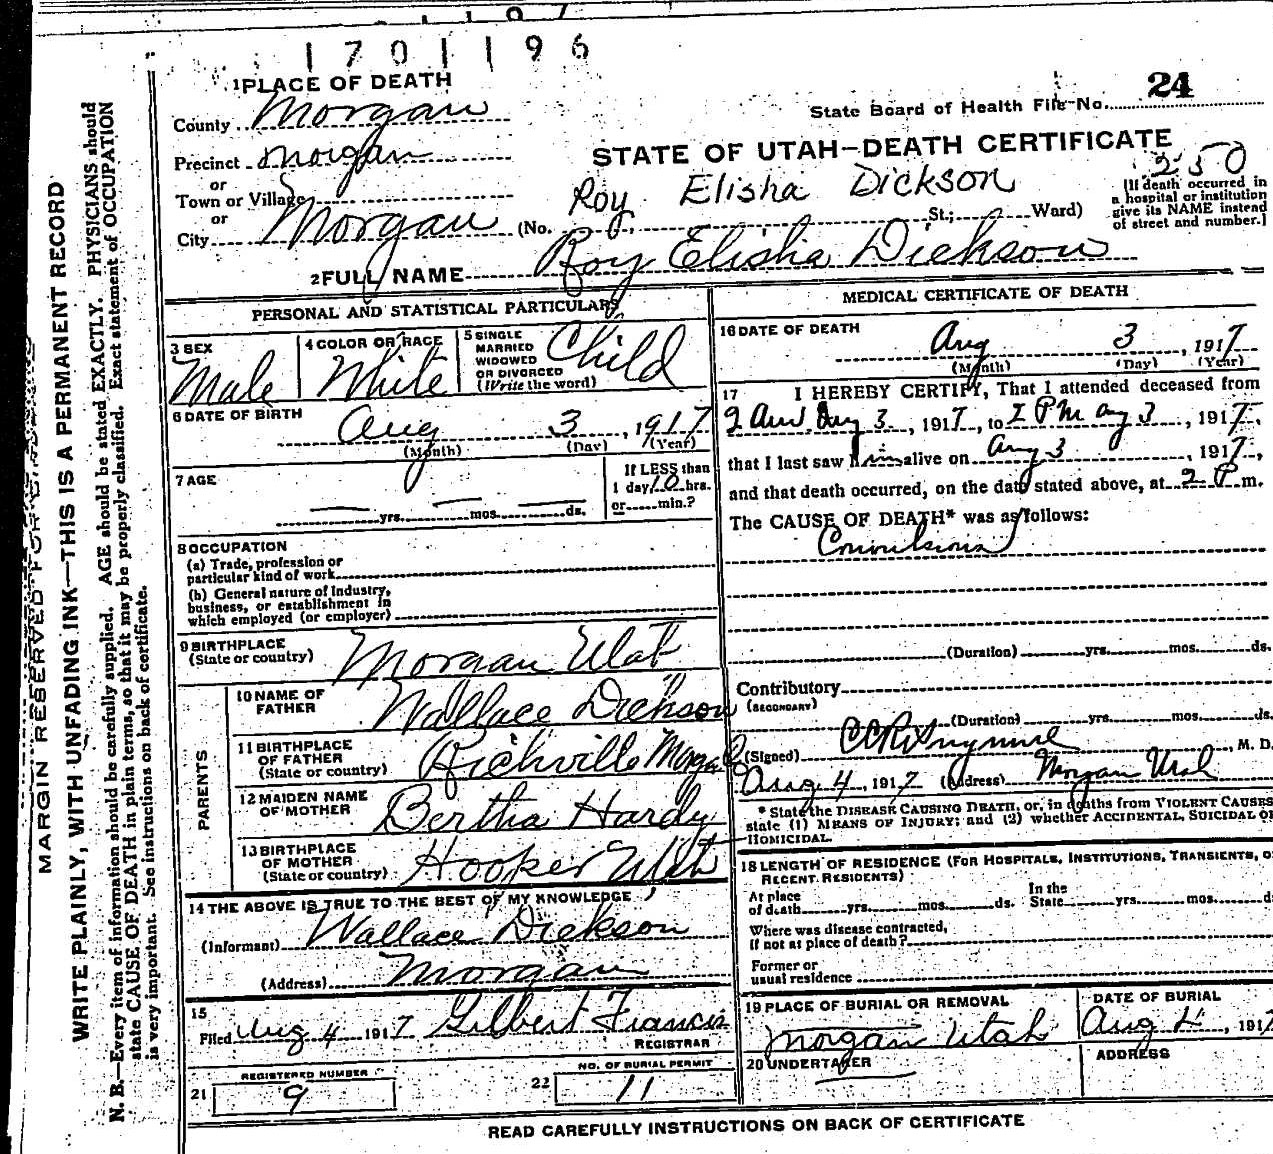 1701196
1 PLACE OF DEATH
24
State Board of Health File No.
County Morgan
STATE OF UTAH—DEATH CERTIFICATE
Precinct Morgan
250
or
Town or Village
Roy Elisha Dickson
[If death occurred in
a hospital or institution
give its NAME instead
of street and number.]
or
City Morgan (No. St.; Ward)
2 FULL NAME Roy Elisha Dickson
PERSONAL AND STATISTICAL PARTICULARS
3 SEX
Male
4 COLOR OR RACE
White
5 SINGLE
MARRIED
WIDOWED
OR DIVORCED
(Write the word)
Child
6 DATE OF BIRTH
Aug 3, 1917
(Month) (Day) (Year)
7 AGE
yrs. mos. ds.
If LESS than
1 day, 10 hrs.
or min.?
8 OCCUPATION
(a) Trade, profession or
particular kind of work
(b) General nature of Industry,
business, or establishment in
which employed (or employer)
9 BIRTHPLACE
(State or country)
Morgan Utah
PARENTS
10 NAME OF
FATHER
Wallace Dickson
11 BIRTHPLACE
OF FATHER
(State or country)
Richville Morgan
12 MAIDEN NAME
OF MOTHER
Bertha Hardy
13 BIRTHPLACE
OF MOTHER
(State or country)
Hooper Utah
14 THE ABOVE IS TRUE TO THE BEST OF MY KNOWLEDGE
(Informant) Wallace Dickson
(Address) Morgan
15
Filed Aug 4 1917 Gilbert Francis
REGISTRAR
21 REGISTERED NUMBER
9
22 NO. OF BURIAL PERMIT
11
MEDICAL CERTIFICATE OF DEATH
16 DATE OF DEATH
Aug 3, 1917
(Month) (Day) (Year)
17 I HEREBY CERTIFY, That I attended deceased from
2 Aug 3, 1917, to 2 PM Aug 3, 1917,
that I last saw him alive on Aug 3, 1917,
and that death occurred, on the date stated above, at 2 P m.
The CAUSE OF DEATH* was as follows:
Convulsions
(Duration) yrs. mos. ds.
Contributory
(SECONDARY)
(Duration) yrs. mos. ds.
(Signed) , M. D.
Aug 4, 1917 (Address) Morgan Utah
* State the DISEASE CAUSING DEATH, or, in deaths from VIOLENT CAUSES
state (1) MEANS OF INJURY; and (2) whether ACCIDENTAL, SUICIDAL OR
HOMICIDAL.
18 LENGTH OF RESIDENCE (FOR HOSPITALS, INSTITUTIONS, TRANSIENTS, OR
RECENT RESIDENTS)
At place
of death yrs. mos. ds.
In the
State yrs. mos. ds.
Where was disease contracted,
if not at place of death?
Former or
usual residence
19 PLACE OF BURIAL OR REMOVAL
Morgan Utah
DATE OF BURIAL
Aug 4, 1917
20 UNDERTAKER
ADDRESS
READ CAREFULLY INSTRUCTIONS ON BACK OF CERTIFICATE
MARGIN RESERVED FOR BINDING
WRITE PLAINLY, WITH UNFADING INK—THIS IS A PERMANENT RECORD
N. B.—Every item of information should be carefully supplied. AGE should be stated EXACTLY. PHYSICIANS should
state CAUSE OF DEATH in plain terms, so that it may be properly classified. Exact statement of OCCUPATION
is very important. See instructions on back of certificate.